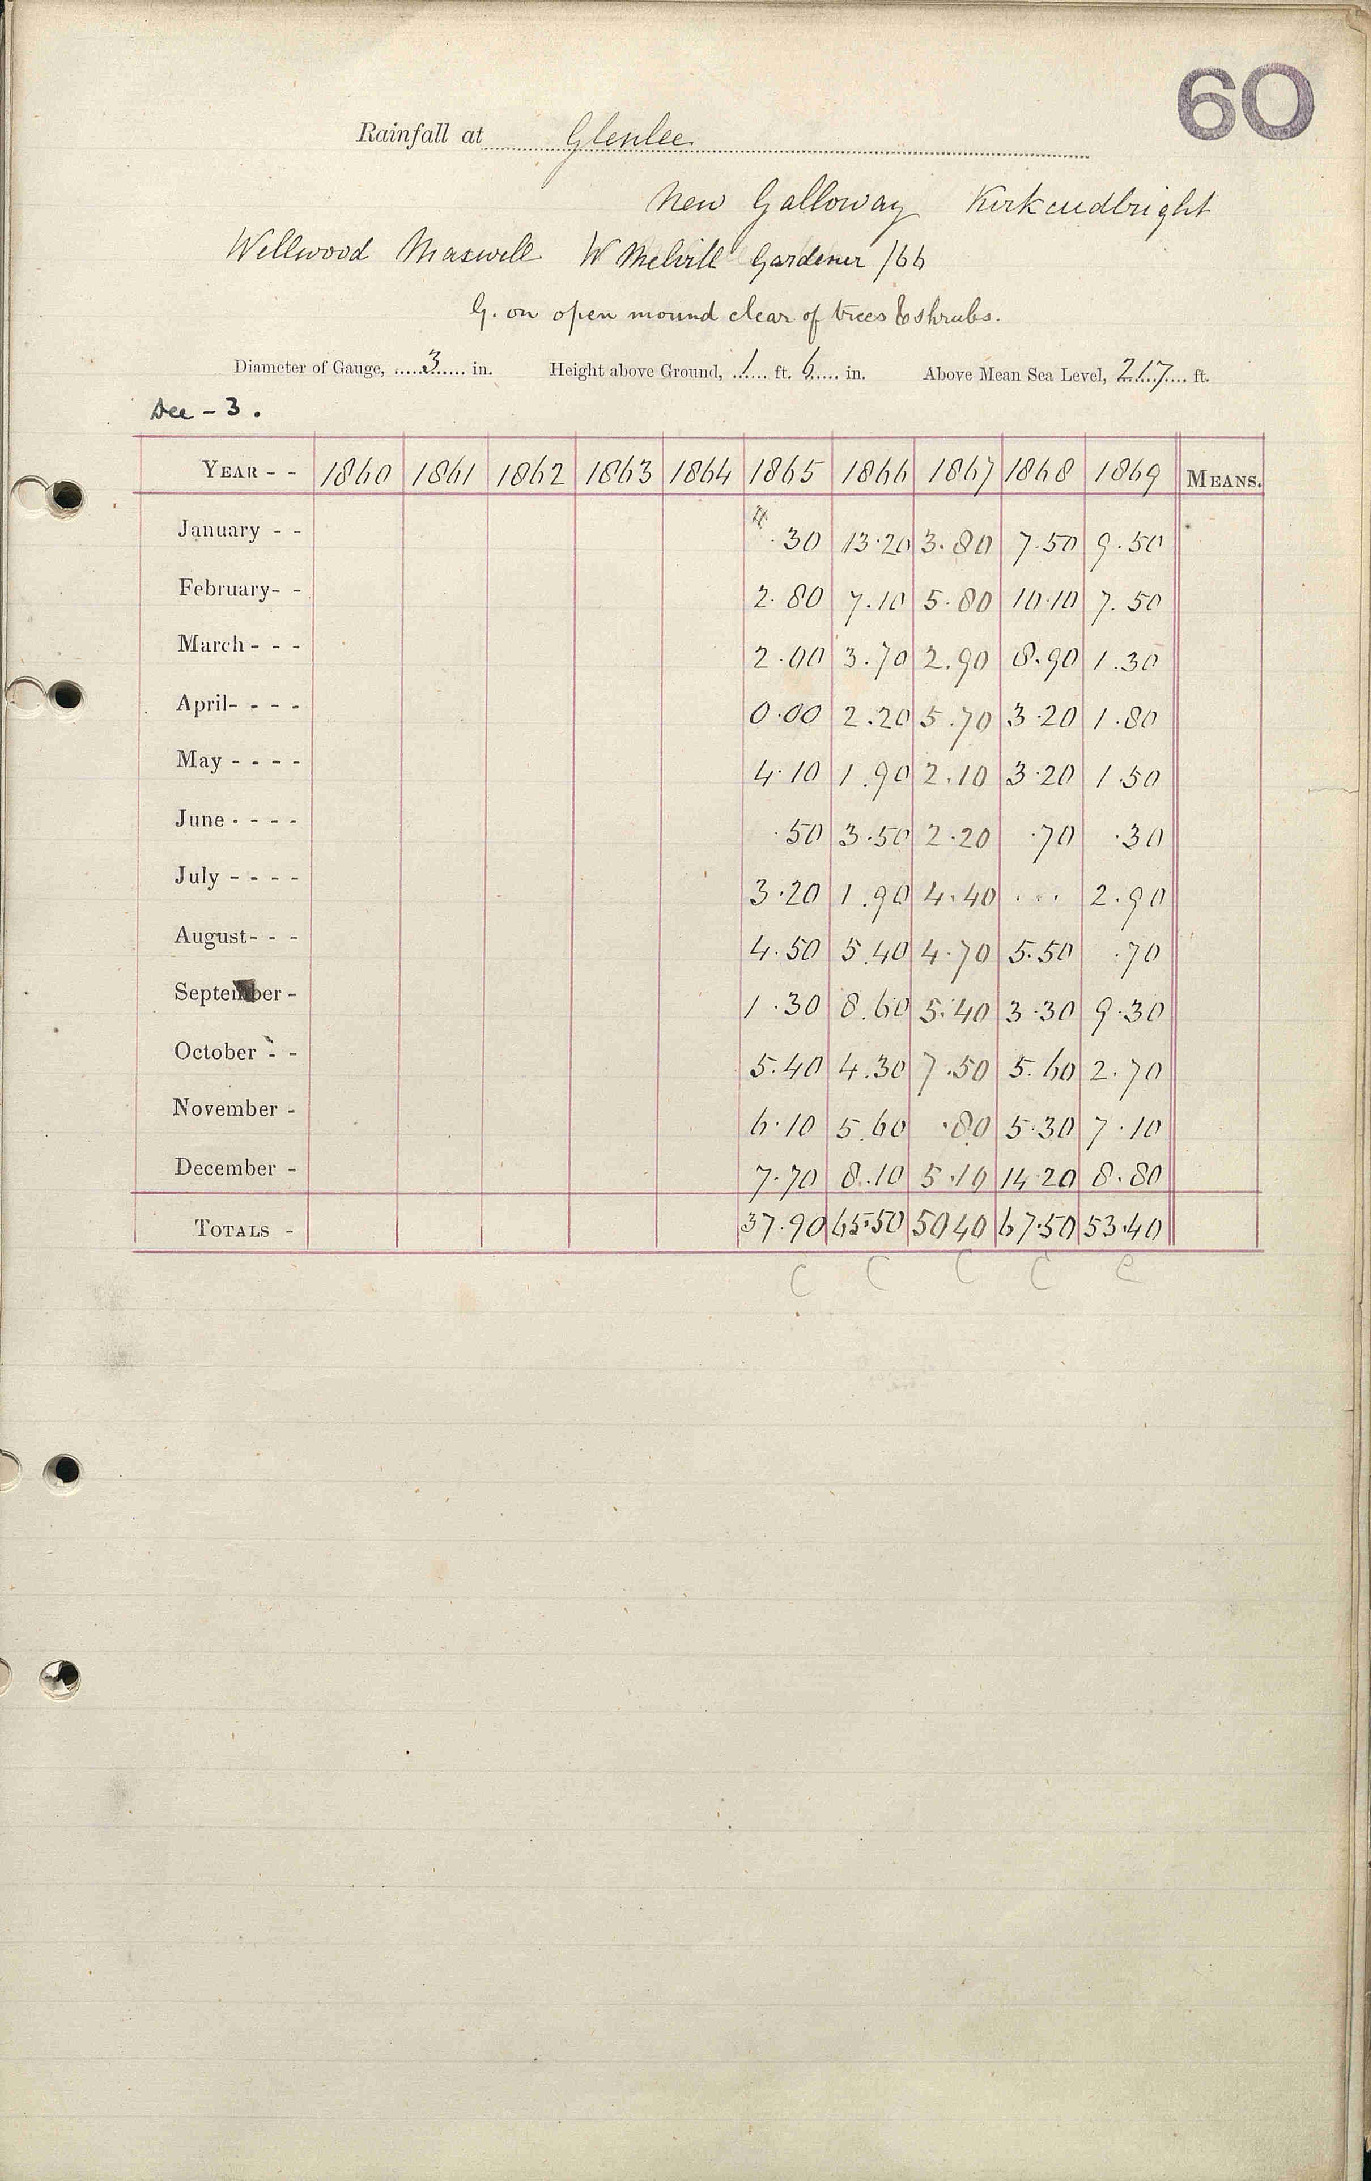 60
Rainfall at Glenlee
New Galloway Kirkcudbright
Wellwood Maxwell W Melvill Gardener /66
G. on open mound clear of trees & shrubs.
Diameter of Gauge, 3 in. Height above Ground, 1 ft. 6 in. Above Mean Sea Level, 217 ft.
Dee - 3.
YEAR - - 1860 1861 1862 1863 1864 1865 1866 1867 1868 1869 MEANS.
January - - .30 13.20 3.80 7.50 9.50
February - - 2.80 7.10 5.80 10.10 7.50
March - - - 2.00 3.70 2.90 8.90 1.30
April - - - - 0.00 2.20 5.70 3.20 1.80
May - - - - 4.10 1.90 2.10 3.20 1.50
June - - - - .50 3.50 2.20 .70 .30
July - - - - 3.20 1.90 4.40 ... 2.90
August - - - 4.50 5.40 4.70 5.50 .70
September - 1.30 8.60 5.40 3.30 9.30
October - - 5.40 4.30 7.50 5.60 2.70
November - 6.10 5.60 .80 5.30 7.10
December - 7.70 8.10 5.10 14.20 8.80
TOTALS - 37.90 65.50 50 40 67.50 53.40
C C C C C